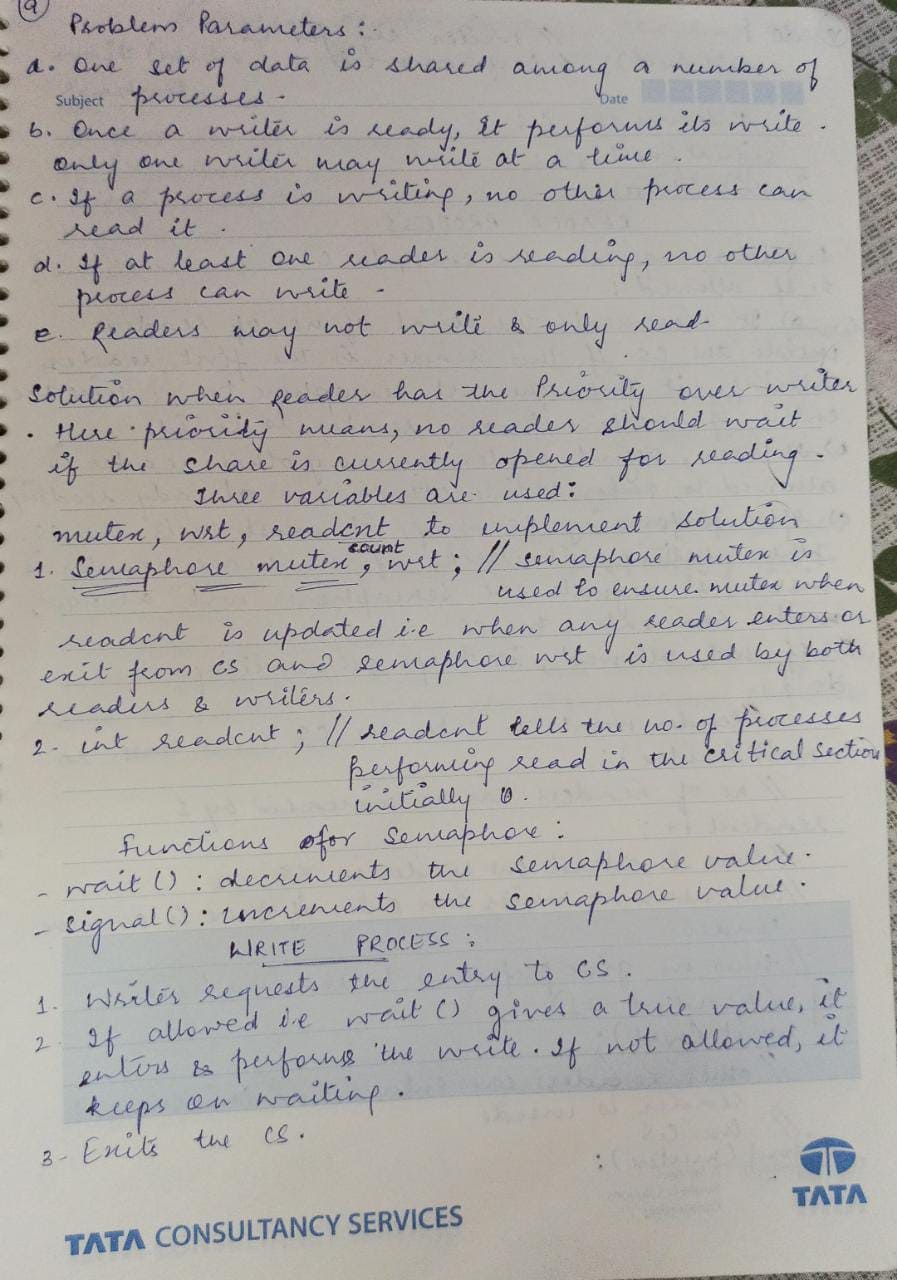 (9)
Problem Parameters :
a. One set of data is shared among a number of
Subject processes. Date
b. Once a writer is ready, It performs its write.
only one writer may write at a time.
c. If a process is writing, no other process can
read it.
d. If at least one reader is reading, no other
process can write -
e. Readers may not write & only read
Solution when Reader has the Priority over writer
. Here priority means, no reader should wait
if the share is currently opened for reading.
Three variables are used:
mutex, wrt, readcnt to implement solution
count
1. Semaphore mutex, wrt; // semaphore mutex is
used to ensure mutex when
readcnt is updated i.e when any reader enters or
exit from CS and semaphore wrt is used by both
readers & writers.
2- int readcnt; // readcnt tells the no. of processes
performing read in the critical section
initially 0.
Functions for Semaphore :
- wait () : decrements the semaphore value.
- signal() : increments the semaphore value.
WRITE PROCESS :
1. Writer requests the entry to CS.
2. If allowed i.e wait () gives a true value, it
enters & performs the write. If not allowed, it
keeps on waiting.
3- Exits the CS.
TATA
TATA CONSULTANCY SERVICES